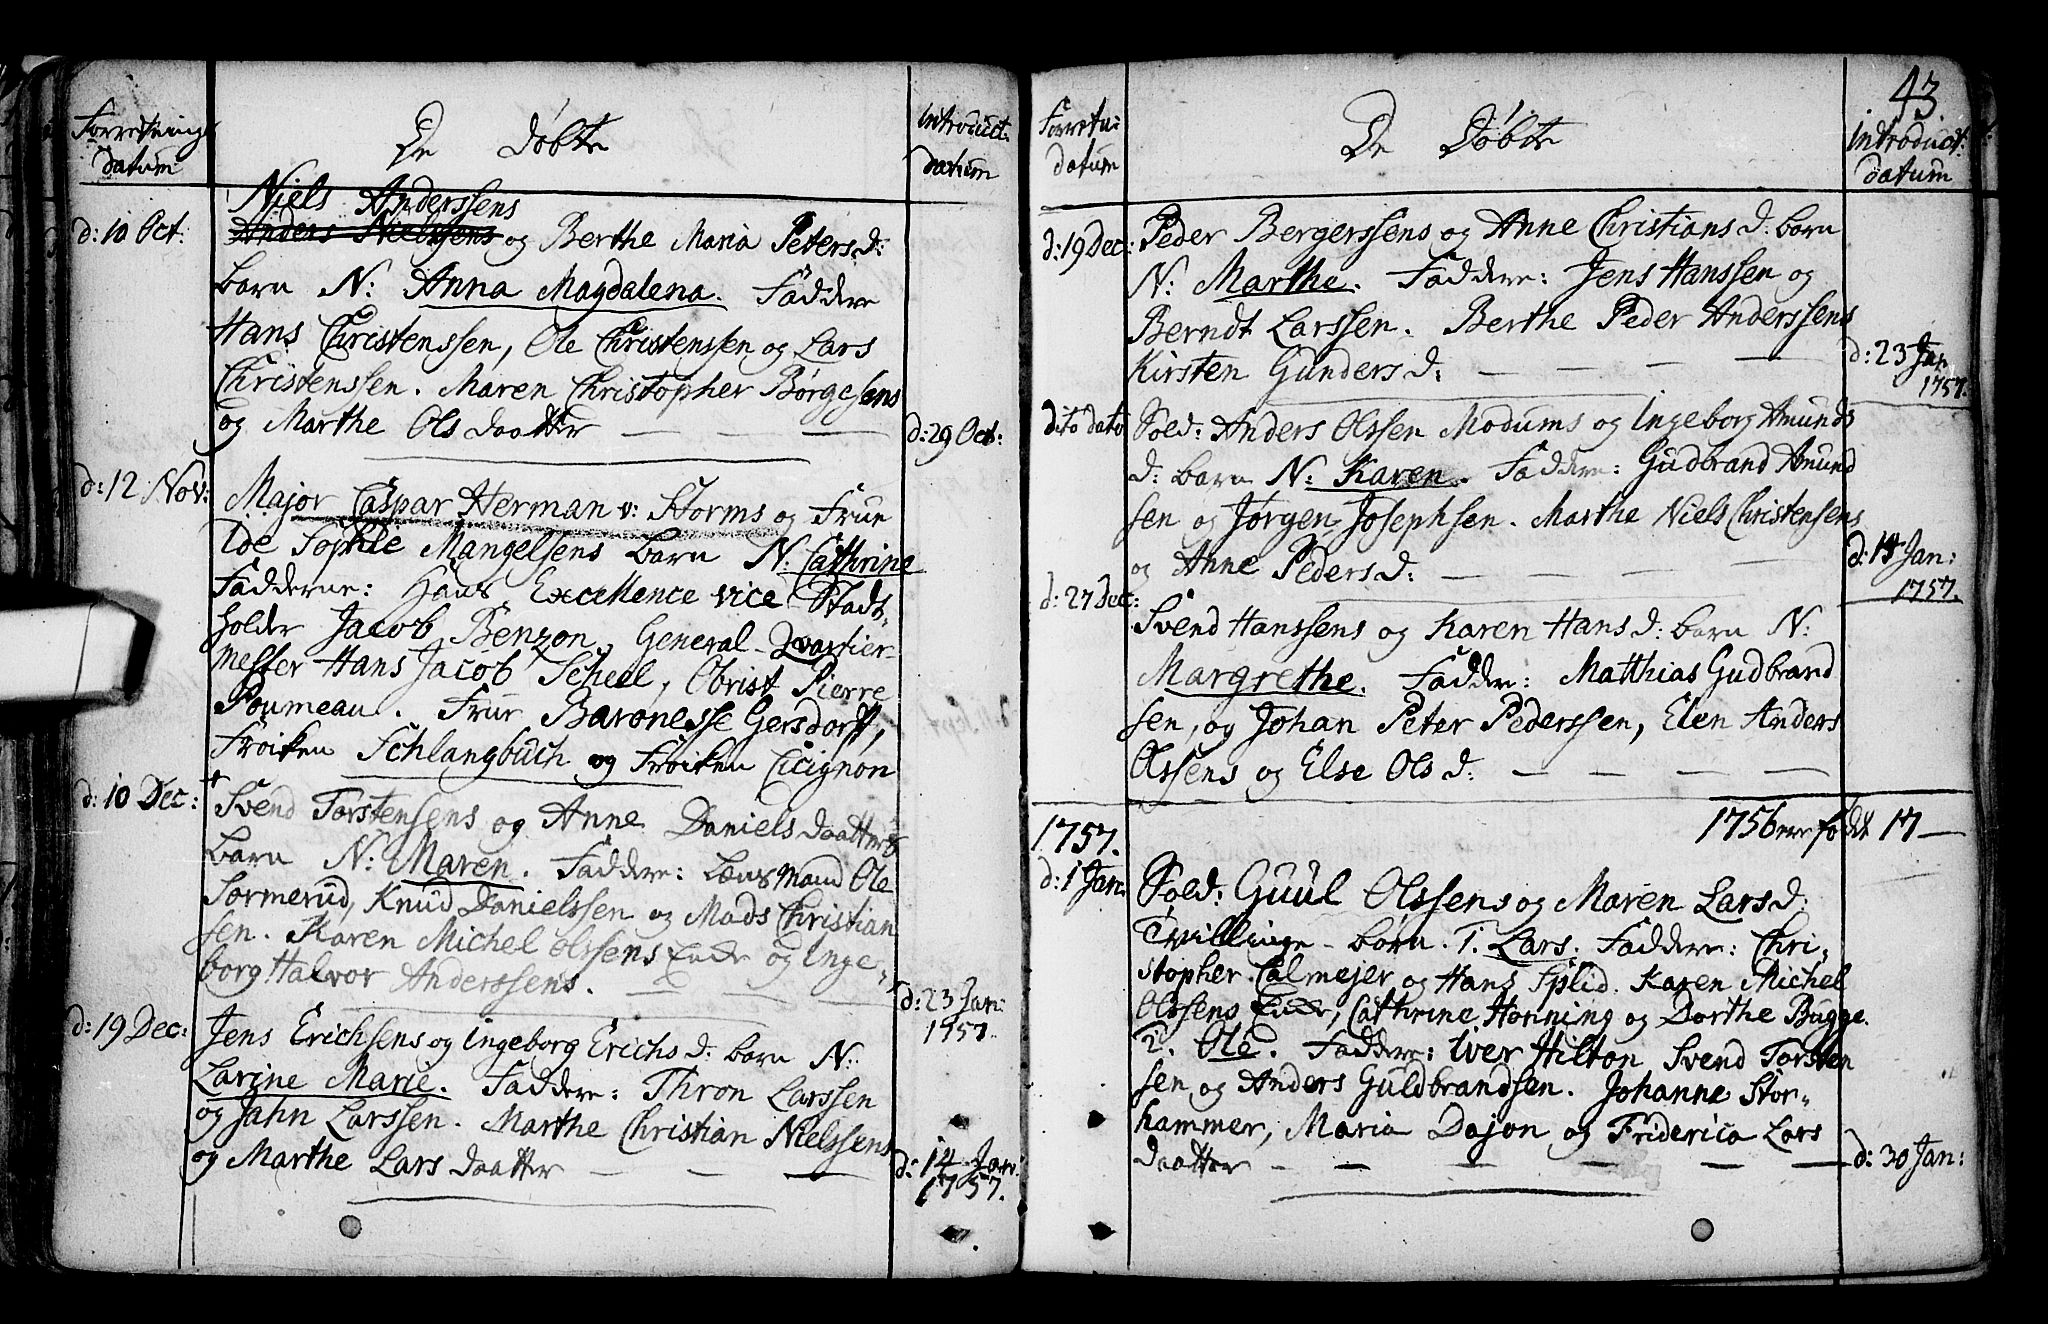 Forretnings
datum
De Døbte
Introduct:
datum
Niels Anderssens
d: 10 Oct: Anders Nielssens og Berthe Maria Peters d:
barn N: Anna Magdalena. Faddere
Hans Christenssen, Ole Christenssen og Lars
Christenssen. Maren Christopher Børgesens
og Marthe Ols daatter — — — d: 29 Oct:
d: 12 Nov: Major Caspar Herman v: Storms og Frue
Ide Sophie Mangelsens barn N: Cathrine
Fadderne: Hans Excellence vice Stadt-
holder Jacob Benzon, General-Qvartier-
mester Hans Jacob Scheel, Obrist Pierre
Poumeau. Frue Baronesse Gersdorff,
Frøiken Schlangbuch og Frøiken Cicignon
d: 10 Dec: Svend Torstensens og Anne Daniels daatters
barn N: Maren. Faddere: Lens Mand Ole
Sormerud, Knud Danielssen og Mads Christian
sen. Karen Michel Olssens Encke og Inge-
borg Halvor Anderssens. — — — d: 23 Jan:
1757.
d: 19 Dec: Jens Erichsens og Ingeborg Erichs d: barn N:
Larine Marie. Faddere: Thron Larssen
og Jahn Larssen. Marthe Christian Nielssens
og Marthe Lars daatter — — — d: 14 Jan:
1757.
43
Forretn:
datum
De Døbte
Introduct:
datum
d: 19 Dec: Peder Bergerssens og Anne Christians d: barn
N: Marthe. Faddere: Jens Hanssen og
Berndt Larssen. Berthe Peder Anderssens
Kirsten Gunders d: — — — — d: 23 Jan
1757.
dito dato Sold: Anders Olssen Modums og Ingeborg Amunds
d: barn N: Karen. Faddere: Gudbrand Amund
sen og Jørgen Josephsen. Marthe Niels Christensens
og Anne Peders d: — — — — d: Jan:
1757.
d: 27 Dec: Svend Hanssens og Karen Hans d: barn N:
Margrethe. Faddere: Matthias Gudbrand
sen, og Johan Peter Pederssen, Elen Anders
Olssens og Else Ols d: — — — —
1756 ere født 17 —
1757.
d: 1 Jan: Sold: Guul Olssens og Maren Lars d:
Tvillinge-børn. 1. Lars. Faddere: Chri-
stopher Calmejer og Hans Splid. Karen Michel
Olssens Encke, Cathrine Honning og Dorthe Bugge.
2. Ole. Faddere: Iver Hilton Svend Torsten
sen og Anders Guldbrandsen. Johanne Stor-
hammer, Maria Dajon og Friderica Lars
daatter — — — — — — d: 30 Jan: